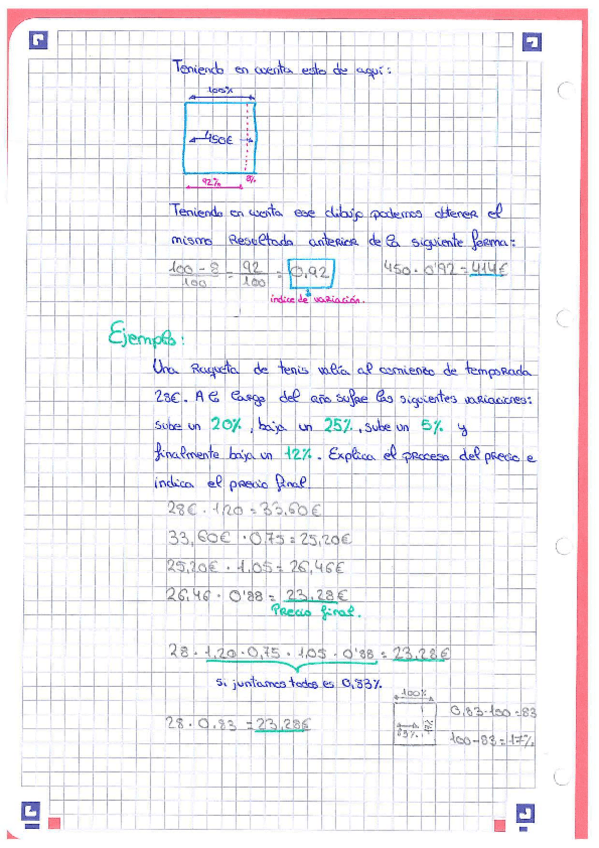 Teniendo en cuenta esto de aquí:
100%
450€
92% 8%
Teniendo en cuenta ese dibujo podemos obtener el
mismo Resultado anterior de la siguiente forma:
100 - 8 / 100 = 92 / 100 = 0,92 450 · 0'92 = 414€
índice de variación.
Ejemplo:
Una Raqueta de tenis valía al comienzo de temporada
28€. A lo largo del año sufre las siguientes variaciones:
sube un 20%, baja un 25%, sube un 5% y
finalmente baja un 12%. Explica el proceso del precio e
indica el precio final.
28€ · 1,20 = 33,60€
33,60€ · 0,75 = 25,20€
25,20€ · 1,05 = 26,46€
26,46 · 0'88 = 23,28€
Precio final.
28 · 1,20 · 0,75 · 1,05 · 0'88 = 23,28€
si juntamos todos es 0,83%
100%
28 · 0,83 = 23,28€ 83% 17% 0,83·100 = 83
100-83 = 17%